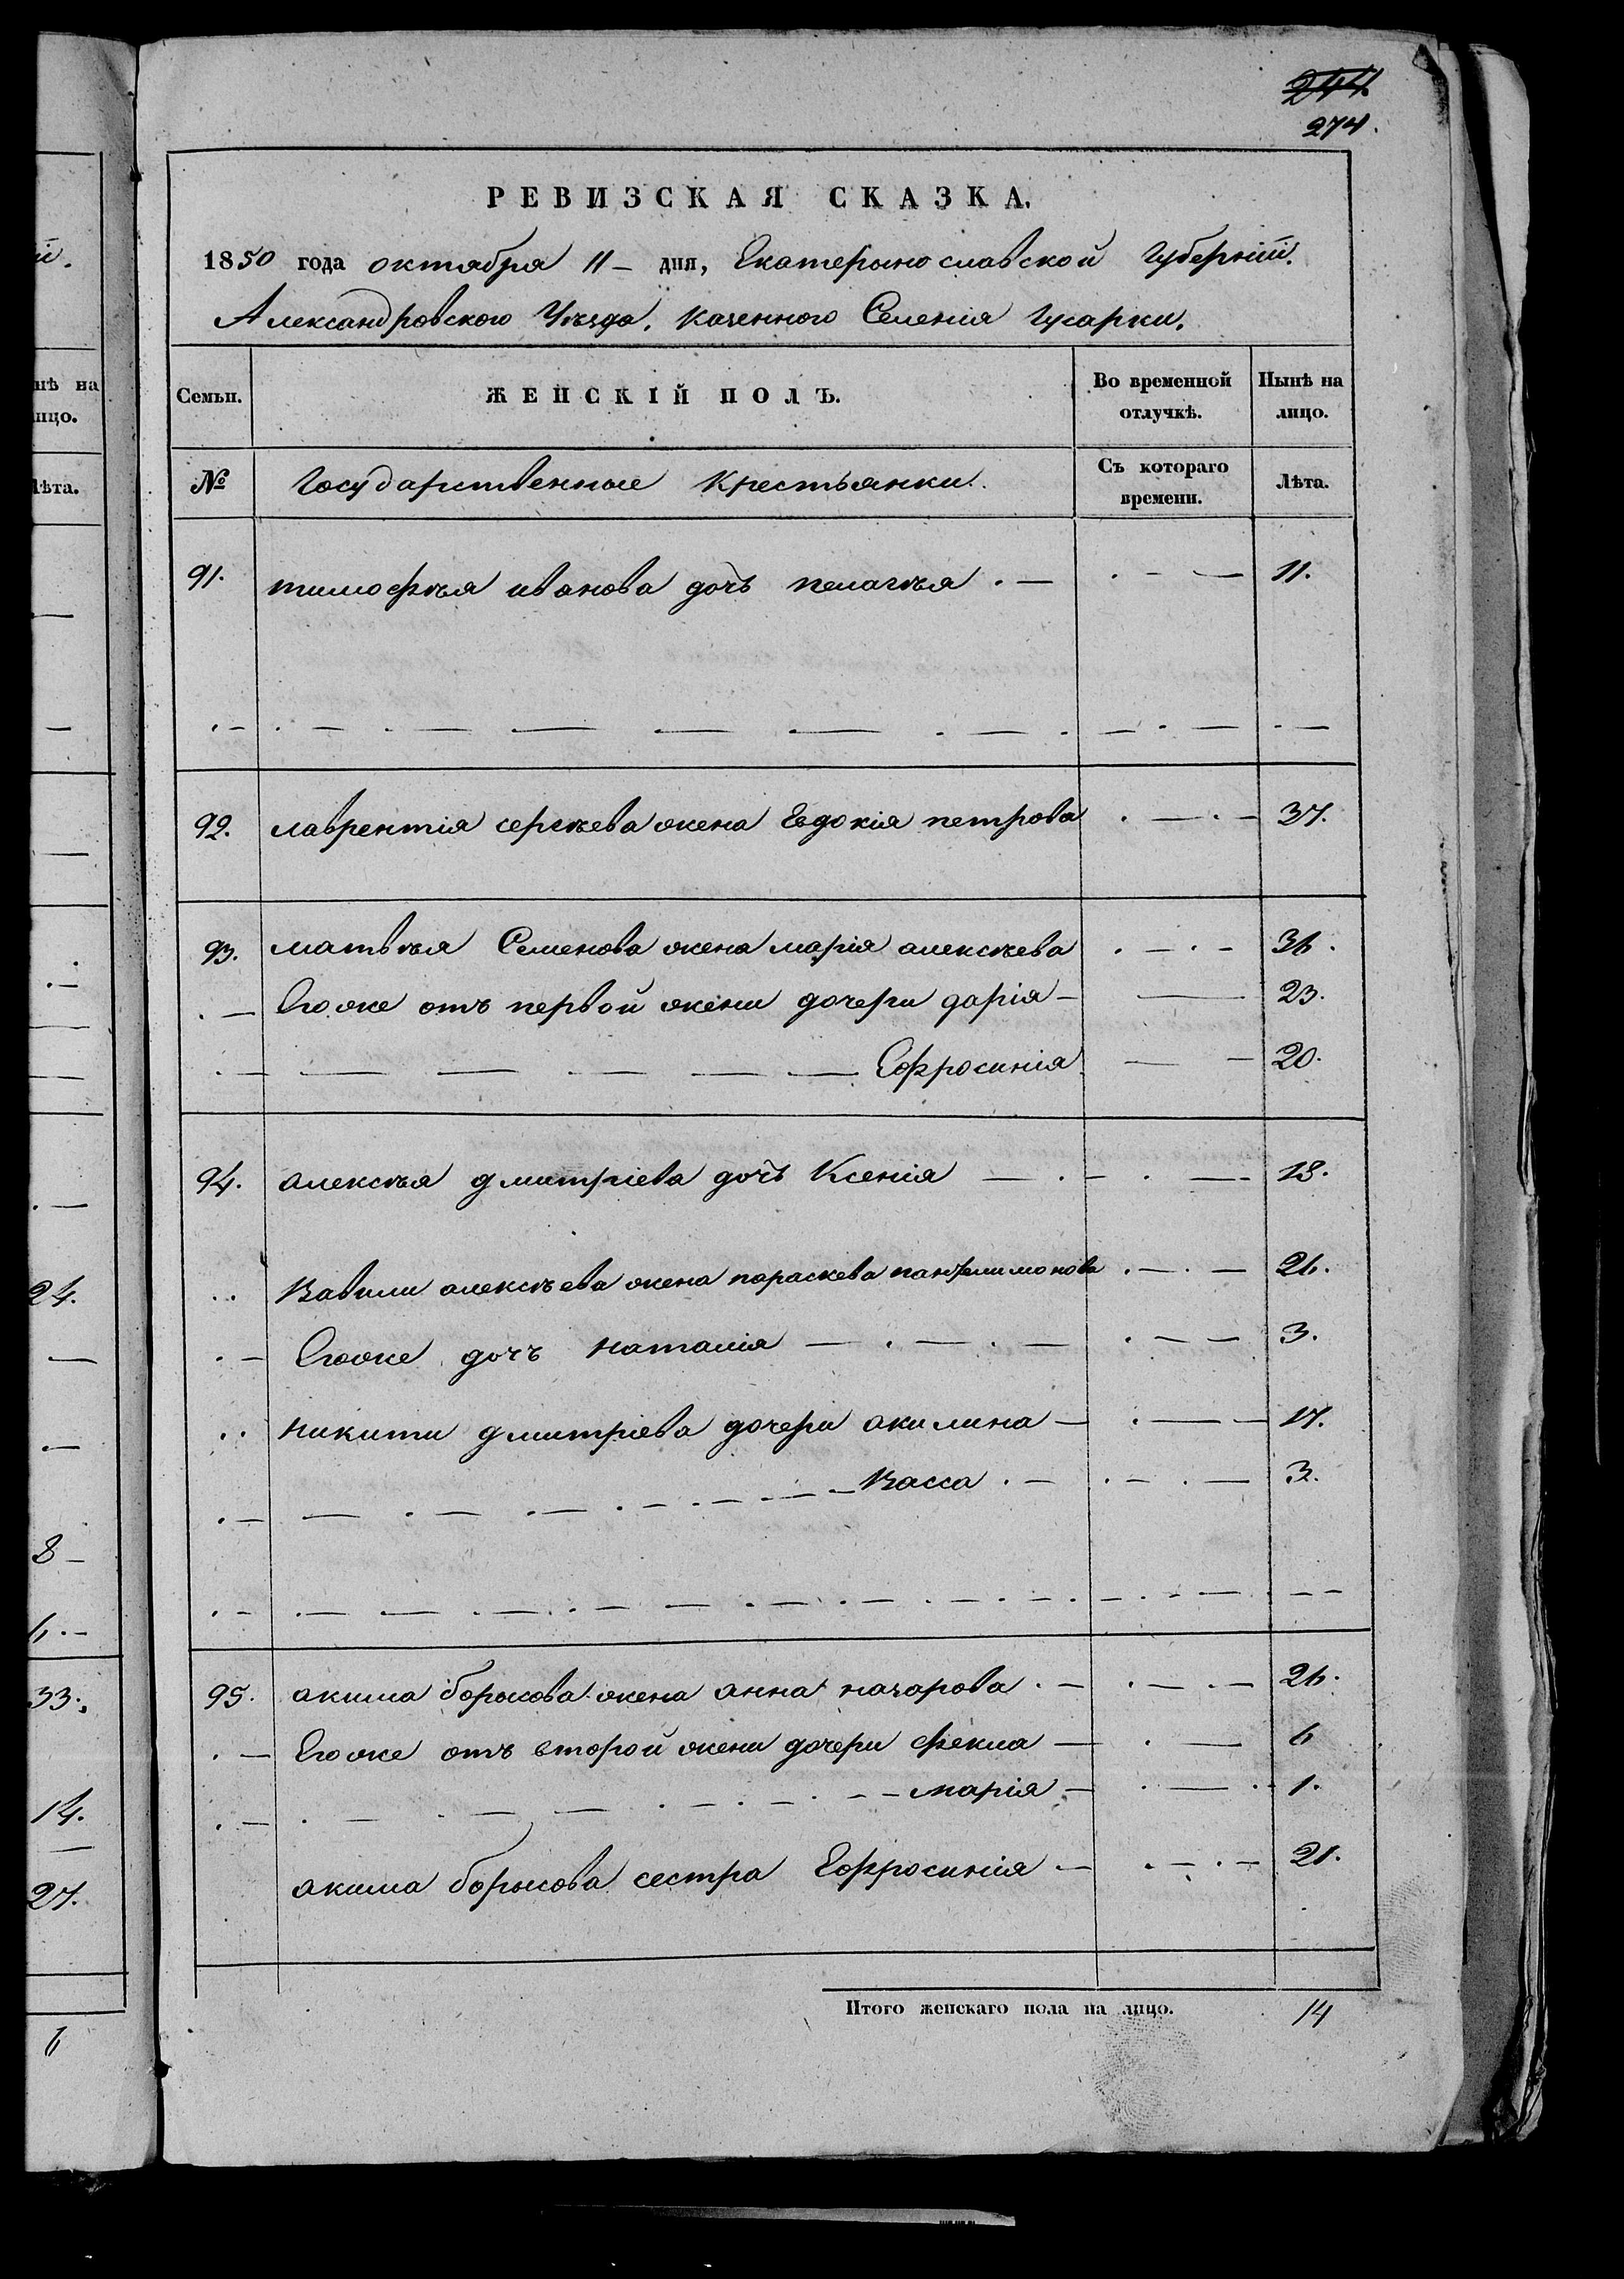 244.
274.
РЕВИЗСКАЯ СКАЗКА.
1850 года октября 11 – дня, Екатерынославской Губерніи.
Александровского Уѣзда, казенного Селенія Гусарки.
Семьи. ЖЕНСКІЙ ПОЛЪ. Во временной отлучкѣ. Нынѣ на лицо.
№ Государственные Крестьянки. Съ котораго времени. Лѣта.
91. тимофѣя иванова дочь пелагѣя . — 11.
92. лаврентія сергѣева жена Евдокія петрова . — . — 37.
93. матвѣя Семенова жена марія алексѣева . — . — 36.
. — Егоже отъ первой жени дочери дарія — 23.
. — — — — — — Ефросинія — — 20.
94. алексѣя дмитріева дочь Ксенія — . — . — 18.
. . Вавили алексѣева жена параскева пантелимонова . — . — 26.
. — Егоже дочъ наталія — . — . — . — — 3.
. . никити дмитріева дочери акилина — . — — 17.
. — — . — . — Васса . — . — . — 3.
95. акима борысова жена анна назарова . — . — . — 26.
. — Егоже отъ второй жени дочери фекла — . — 6
. — марія — . — . 1.
акима борысова сестра Ефросинія . — . — . — 21.
Итого женскаго пола на лицо. 14
нѣ на
лицо.
Лѣта.
24.
8 –
6 . –
33.
14.
27.
6